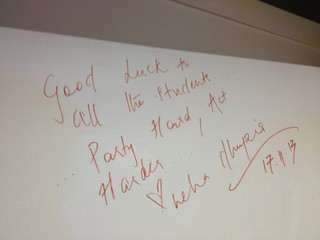 Good Luck to
all the students.
Party Hard, Act
Harder
Neha Dhupia
17.1.13